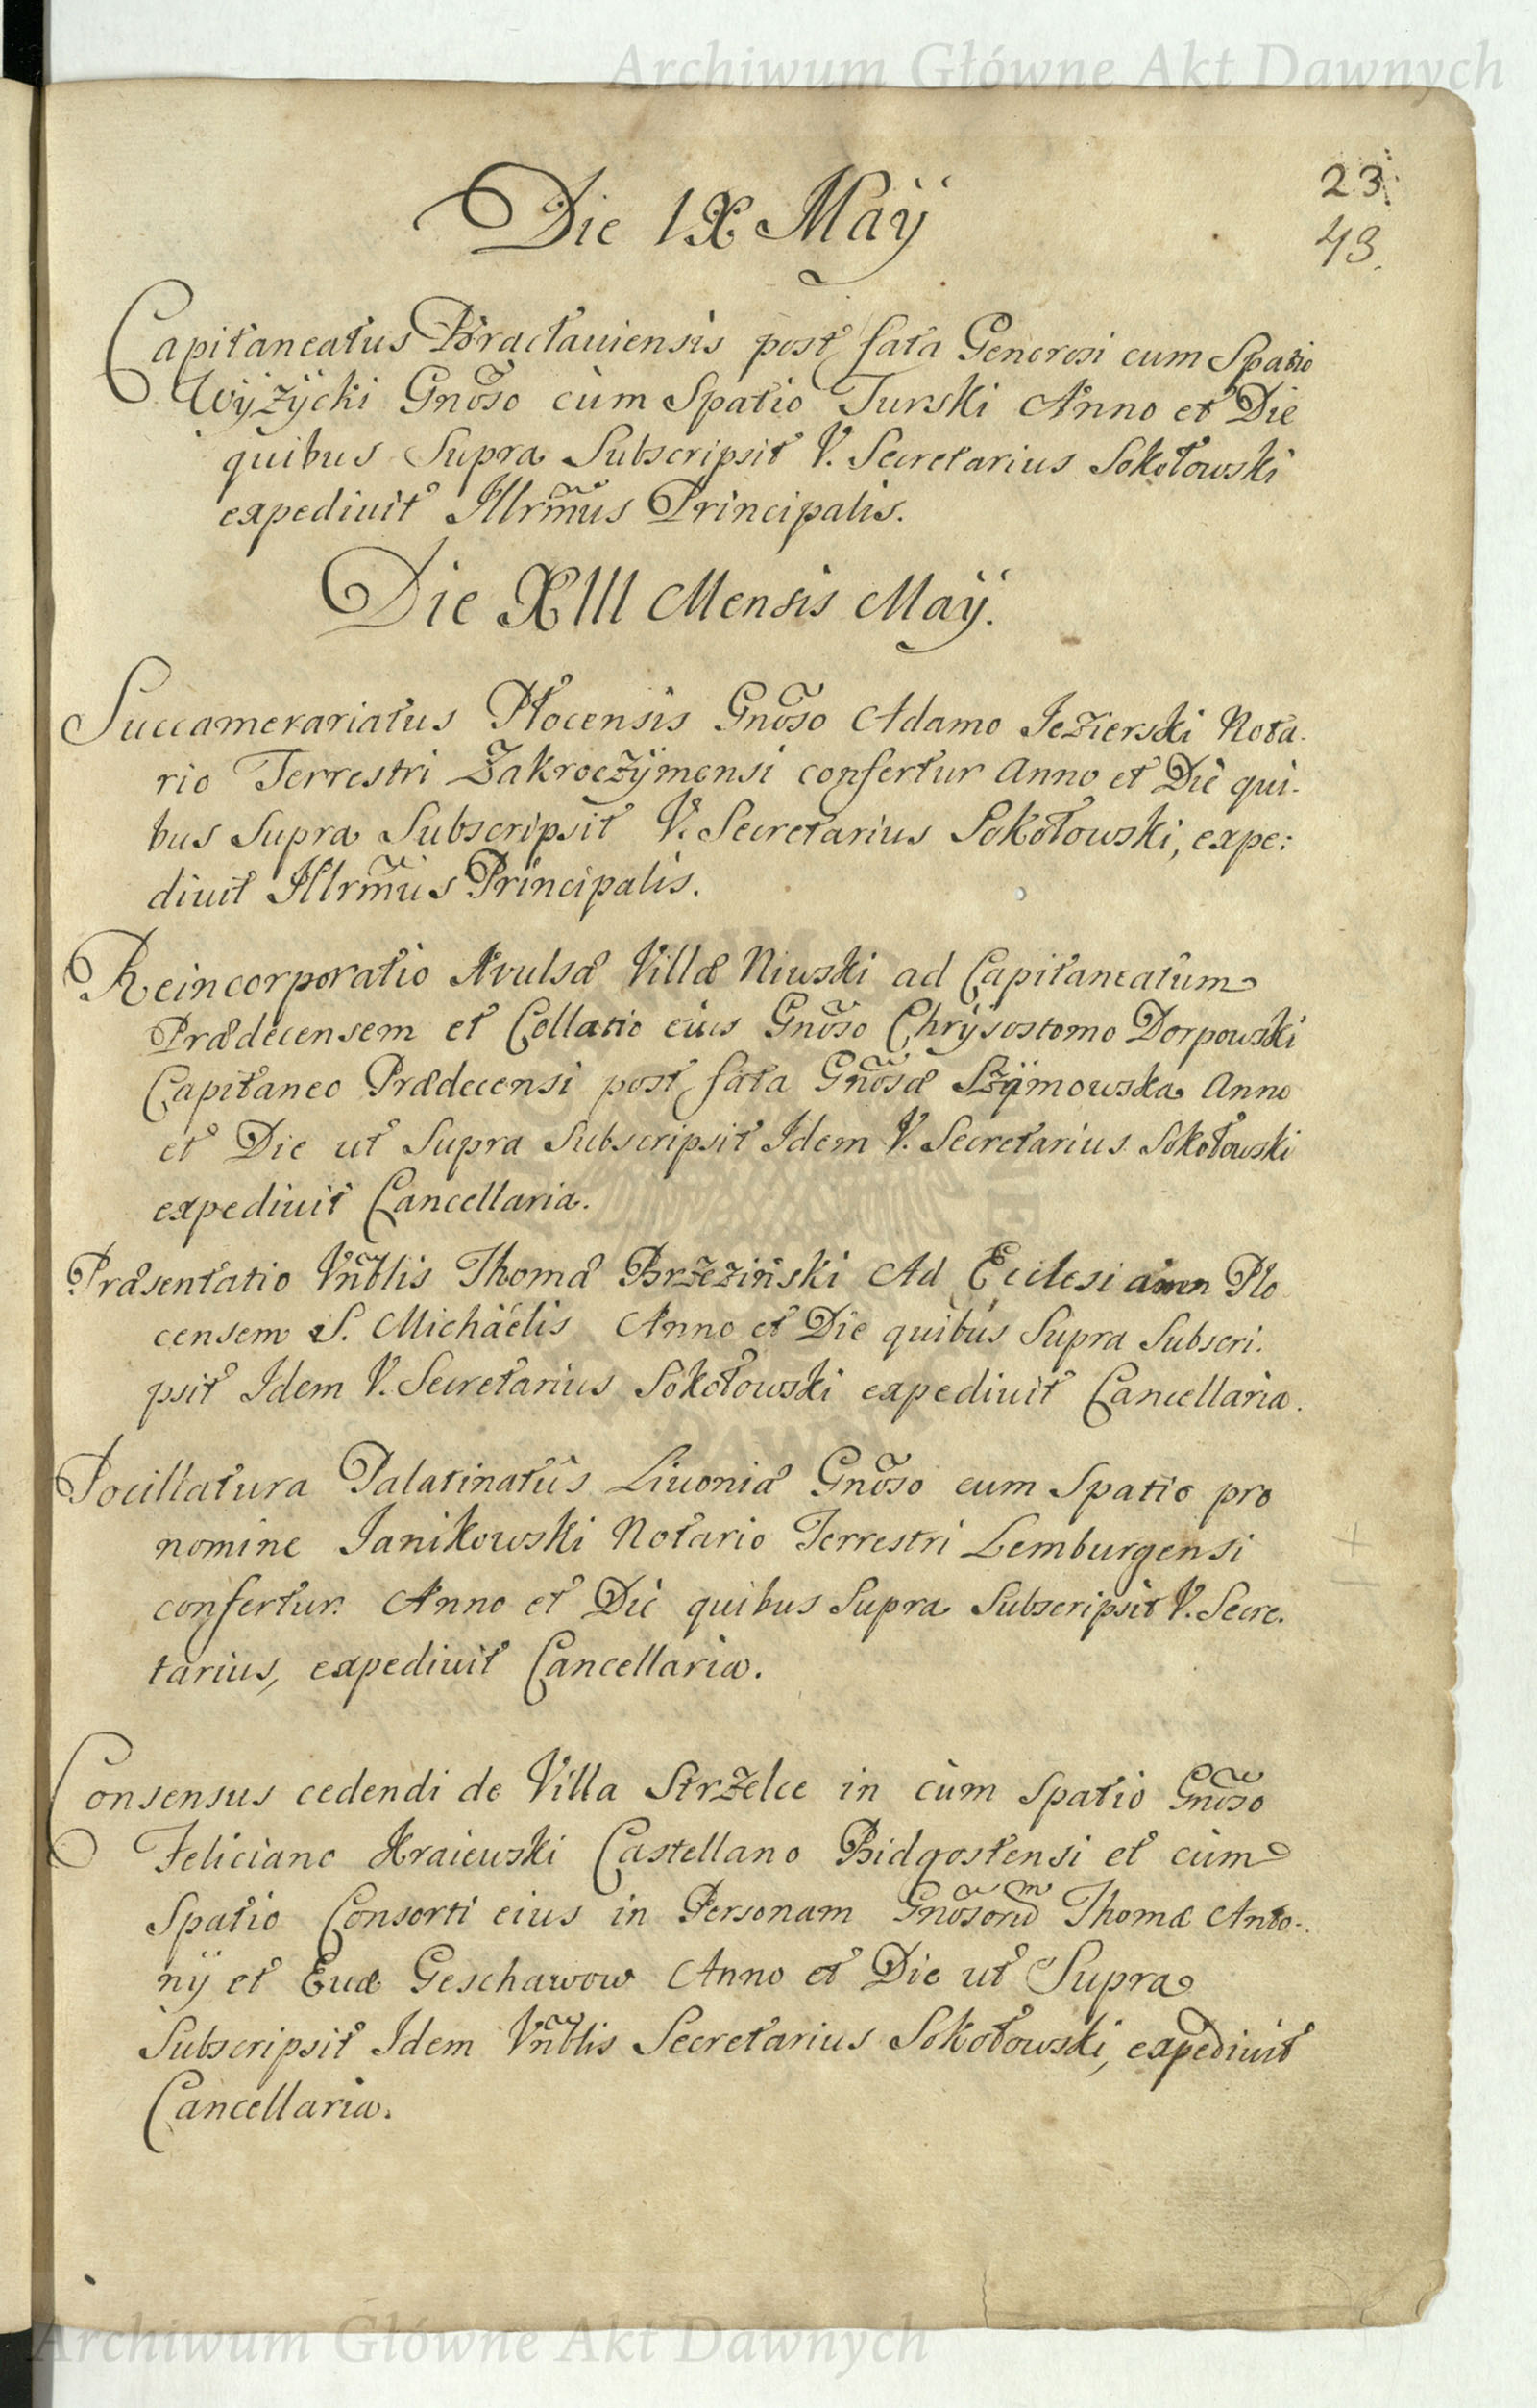 Archiwum Główne Akt Dawnych
23.
43.
Die IX Maÿ
Capitaneatus Bractauiensis post fata Generosi cum Spatio
Wÿżÿcki Gnõso cum Spatio Turski Anno et Die
quibus Supra Subscripsit V. Secretarius Sokołowski
expediuit Illrm̃us Principalis.
Die XIII Mensis Maÿ.
Succamerariatus Płocensis Gnõso Adamo Jezierski Nota-
rio Terrestri Zakroczÿmensi confertur Anno et Die qui-
bus Supra Subscripsit V. Secretarius Sokołowski, expe:
diuit Illrm̃us Principalis.
Reincorporatio Avulsæ Villæ Niwski ad Capitaneatum
Prædecensem et Collatio eius Gnõso Chrÿsostomo Dorpowski
Capitaneo Prædecensi post fata Gnõsæ Szÿmowska Anno
et Die ut Supra Subscripsit Idem V. Secretarius Sokołowski
expediuit Cancellaria.
Præsentatio Vñblis Thomæ Brzeziński Ad Ecclesiam Plo
censem S. Michäelis Anno et Die quibus Supra Subscri.
psit Idem V. Secretarius Sokołowski expediuit Cancellaria.
Pocillatura Palatinatus Liuoniæ Gnõso cum Spatio pro
nomine Janikowski Notario Terrestri Lemburgensi
confertur. Anno et Die quibus Supra Subscripsit V. Secre.
tarius, expediuit Cancellaria.
Consensus cedendi de Villa Strzelce in cum Spatio Gnõso
Feliciano Kraiewski Castellano Bidgostensi et cum
Spatio Consorti eius in Personam Gnõsorũm Thomæ Anto-
nÿ et Euæ Geschawow Anno et Die ut Supra
Subscripsit Idem Vñblis Secretarius Sokołowski, expediuit
Cancellaria.
Archiwum Główne Akt Dawnych